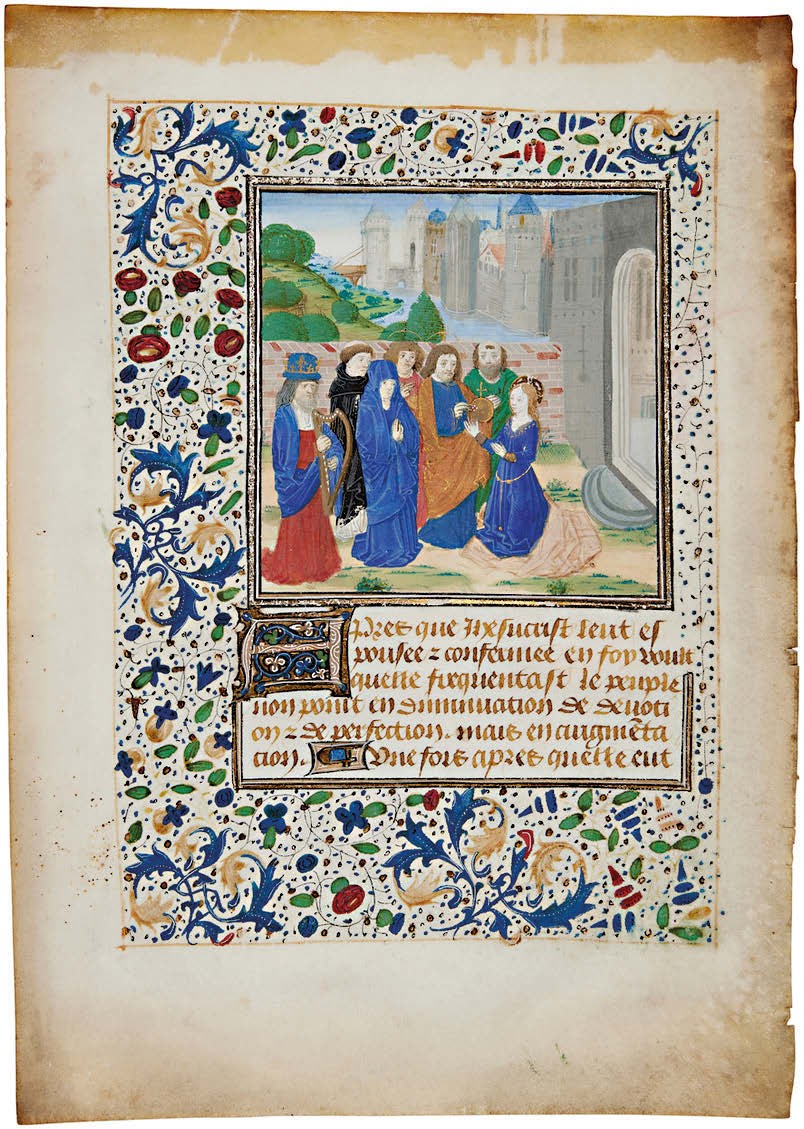 Apres que Jhesucrist leut es
pousee ⁊ confermee en foy voult
quelle frequentast le peuple
non point en diminution de devoti
on ⁊ de perfection. mais en augmēta
cion. Une fois apres quelle eut